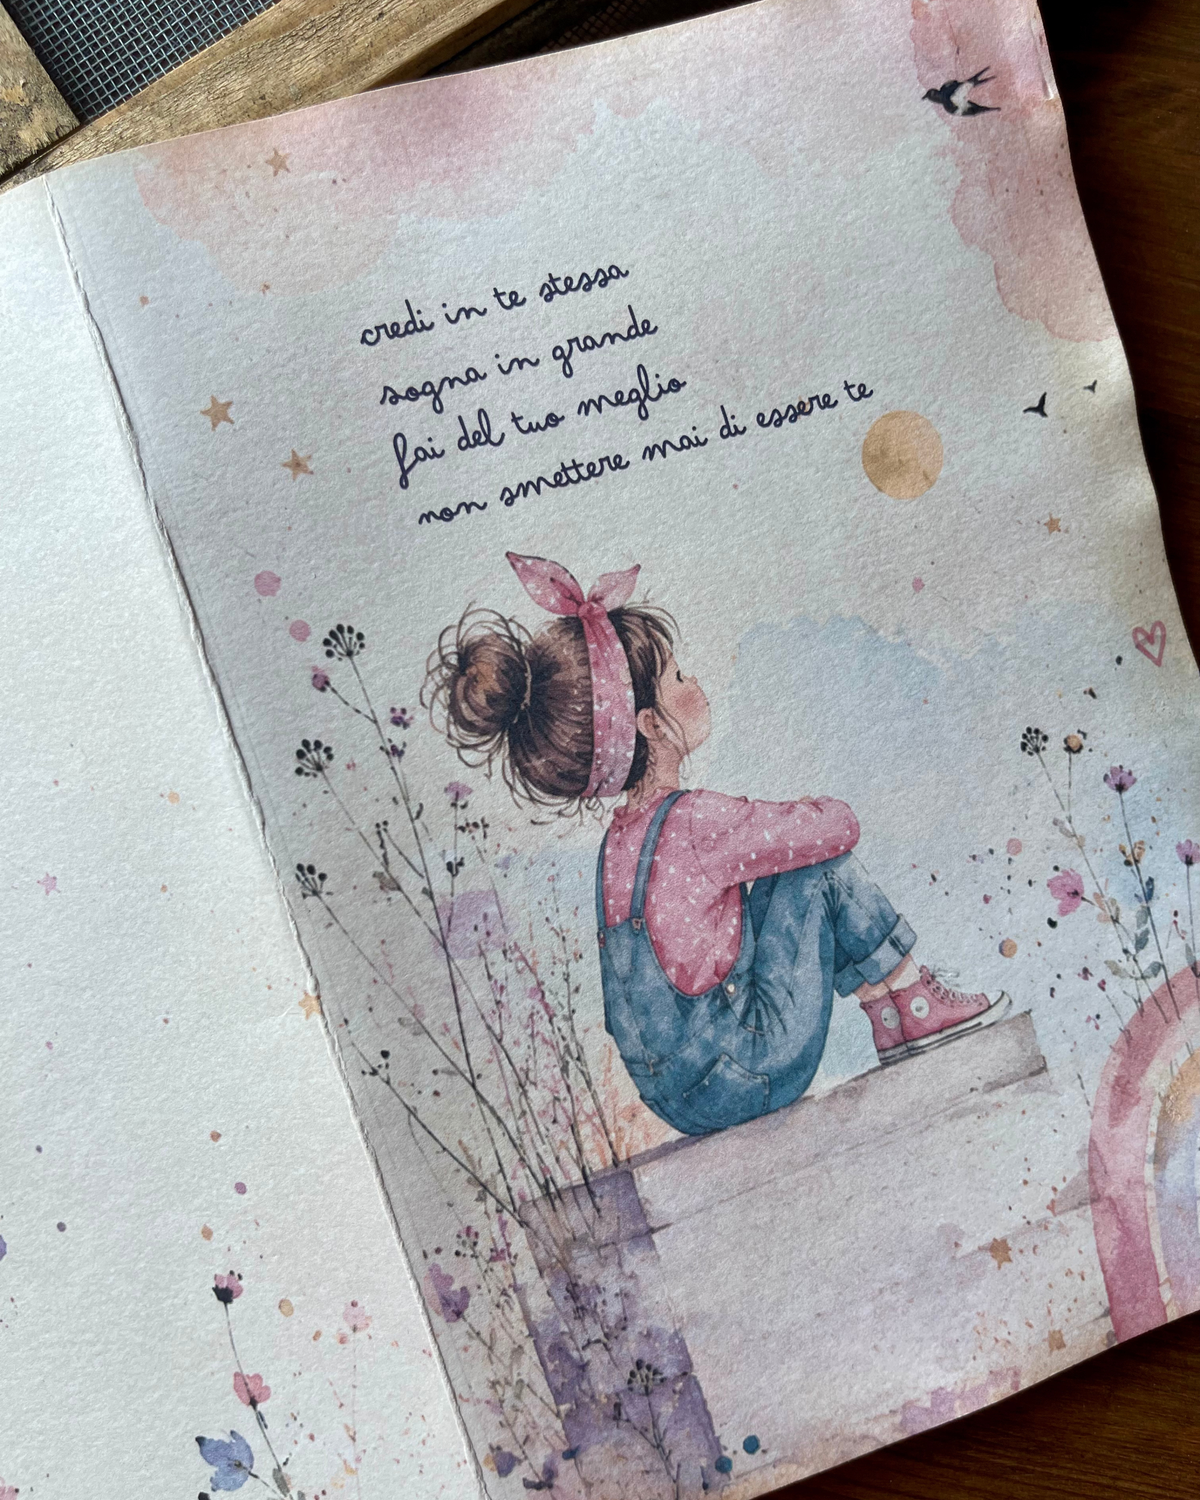 credi in te stessa
sogna in grande
fai del tuo meglio
non smettere mai di essere te